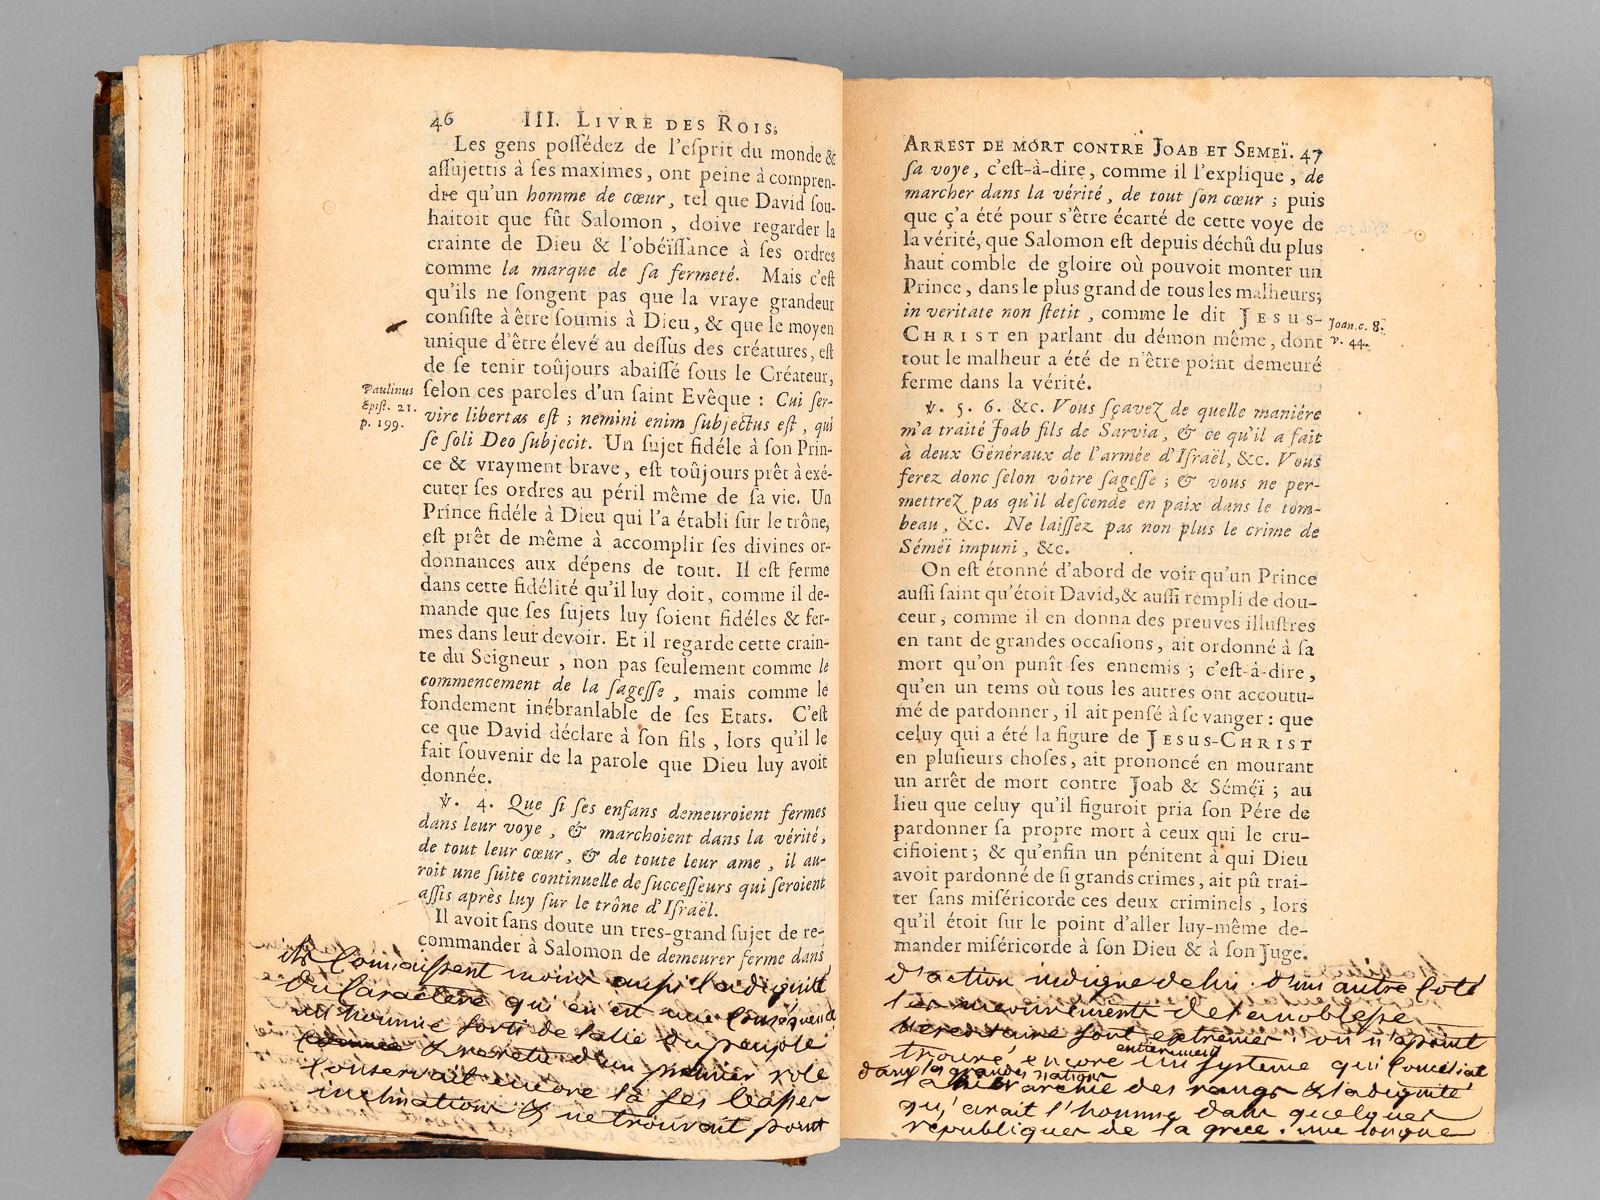 46 III. LIVRE DES ROIS,
Les gens poſſédez de l'eſprit du monde &
aſſujettis à ſes maximes, ont peine à compren-
dre qu'un homme de cœur, tel que David ſou-
haitoit que fût Salomon, doive regarder la
crainte de Dieu & l'obéïſſance à ſes ordres
comme la marque de ſa fermeté. Mais c'eſt
qu'ils ne ſongent pas que la vraye grandeur
conſiſte à être ſoumis à Dieu, & que le moyen
unique d'être élevé au deſſus des créatures, eſt
de ſe tenir toûjours abaiſſé ſous le Créateur,
ſelon ces paroles d'un ſaint Evêque : Cui ſer-
vire libertas eſt ; nemini enim ſubjectus eſt, qui
ſe ſoli Deo ſubjecit. Un ſujet fidéle à ſon Prin-
ce & vrayment brave, eſt toûjours prêt à exé-
cuter ſes ordres au péril même de ſa vie. Un
Prince fidéle à Dieu qui l'a établi ſur le trône,
eſt prêt de même à accomplir ſes divines or-
donnances aux dépens de tout. Il eſt ferme
dans cette fidélité qu'il luy doit, comme il de-
mande que ſes ſujets luy ſoient fidéles & fer-
mes dans leur devoir. Et il regarde cette crain-
te du Seigneur, non pas ſeulement comme le
commencement de la ſageſſe, mais comme le
fondement inébranlable de ſes Etats. C'eſt
ce que David déclare à ſon fils, lors qu'il le
fait ſouvenir de la parole que Dieu luy avoit
donnée.
℣. 4. Que ſi ſes enfans demeuroient fermes
dans leur voye, & marchoient dans la vérité,
de tout leur cœur, & de toute leur ame, il au-
roit une ſuite continuelle de ſucceſſeurs qui ſeroient
aſſis après luy ſur le trône d'Iſraël.
Il avoit ſans doute un tres-grand ſujet de re-
commander à Salomon de demeurer ferme dans
Paulinus
Epiſt. 21.
p. 199.
ils Connaissent moins aussi la dignité
du Caractere qui en est une Consequence
un homme sorti de la lie du peuple
& revetu d'un premier role
Conservait encore la ses basses
inclinations & ne trouvait point
ARREST DE MORT CONTRE JOAB ET SEMEÏ. 47
ſa voye, c'eſt-à-dire, comme il l'explique, de
marcher dans la vérité, de tout ſon cœur ; puis
que ç'a été pour s'être écarté de cette voye de
la vérité, que Salomon eſt depuis déchû du plus
haut comble de gloire où pouvoit monter un
Prince, dans le plus grand de tous les malheurs;
in veritate non ſtetit, comme le dit JESUS-
CHRIST en parlant du démon même, dont
tout le malheur a été de n'être point demeuré
ferme dans la vérité.
℣. 5. 6. &c. Vous ſçavez de quelle maniére
m'a traité Joab fils de Sarvia, & ce qu'il a fait
à deux Généraux de l'armée d'Iſraël, &c. Vous
ferez donc ſelon vôtre ſageſſe ; & vous ne per-
mettrez pas qu'il deſcende en paix dans le tom-
beau, &c. Ne laiſſez pas non plus le crime de
Séméï impuni, &c.
On eſt étonné d'abord de voir qu'un Prince
auſſi ſaint qu'étoit David, & auſſi rempli de dou-
ceur, comme il en donna des preuves illuſtres
en tant de grandes occaſions, ait ordonné à ſa
mort qu'on punît ſes ennemis ; c'eſt-à-dire,
qu'en un tems où tous les autres ont accoutu-
mé de pardonner, il ait penſé à ſe vanger : que
celuy qui a été la figure de JESUS-CHRIST
en pluſieurs choſes, ait prononcé en mourant
un arrêt de mort contre Joab & Séméï ; au
lieu que celuy qu'il figuroit pria ſon Pére de
pardonner ſa propre mort à ceux qui le cru-
cifioient ; & qu'enfin un pénitent à qui Dieu
avoit pardonné de ſi grands crimes, ait pû trai-
ter ſans miſéricorde ces deux criminels, lors
qu'il étoit ſur le point d'aller luy-même de-
mander miſéricorde à ſon Dieu & à ſon Juge.
Joan. c. 8.
v. 44.
d'action indigne de lui. d'un autre Coté
les de la noblesse
hereditaire sont extremes : on n'a point
trouvé encore un systeme qui Conciliat
entierement
dans les grandes nations
la hierarchie des rangs & la dignité
qu'avait l'homme dans quelques
republiques de la grece. une longue